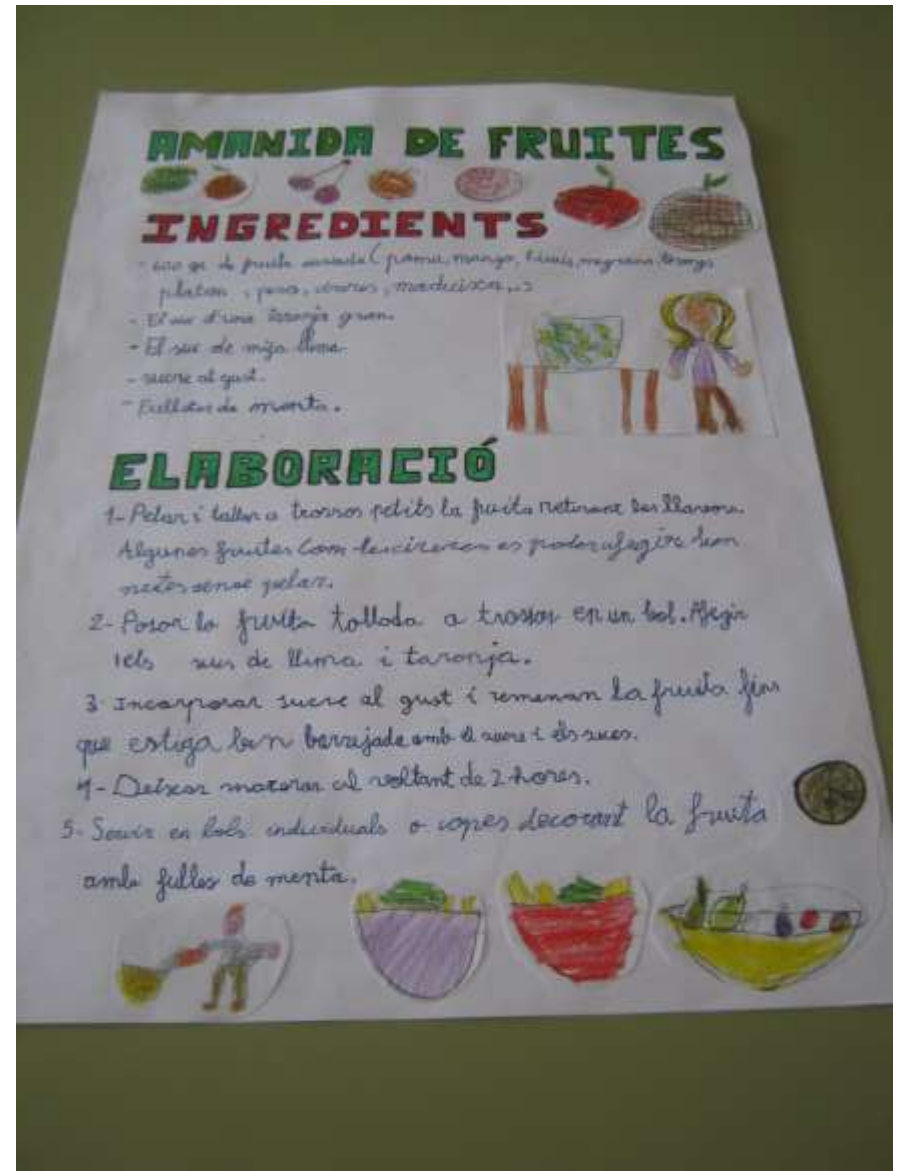 AMANIDA DE FRUITES
INGREDIENTS
- 600 gr de fruita variada (poma, mango, kiwis, magrana, taronja
platan, pera, cireres, maduixa,
- El suc d'una taronja gran.
- El suc de mija llima
- sucre al gust.
- Fulletes de menta.
ELABORACIÓ
1- Pelar i tallar a trossos petits la fruita retirant les llavors.
Algunes fruites com les cireres es poden afegir ben
netes sense pelar.
2- Posar la fruita tallada a trossos en un bol. Afegir
els sucs de llima i taronja.
3- Incorporar sucre al gust i remenan la fruita fins
que estiga ben barrejada amb el sucre i els sucs.
4- Deixar macerar al voltant de 2 hores.
5- Servir en bols individuals o copes decorant la fruita
amb fulles de menta.